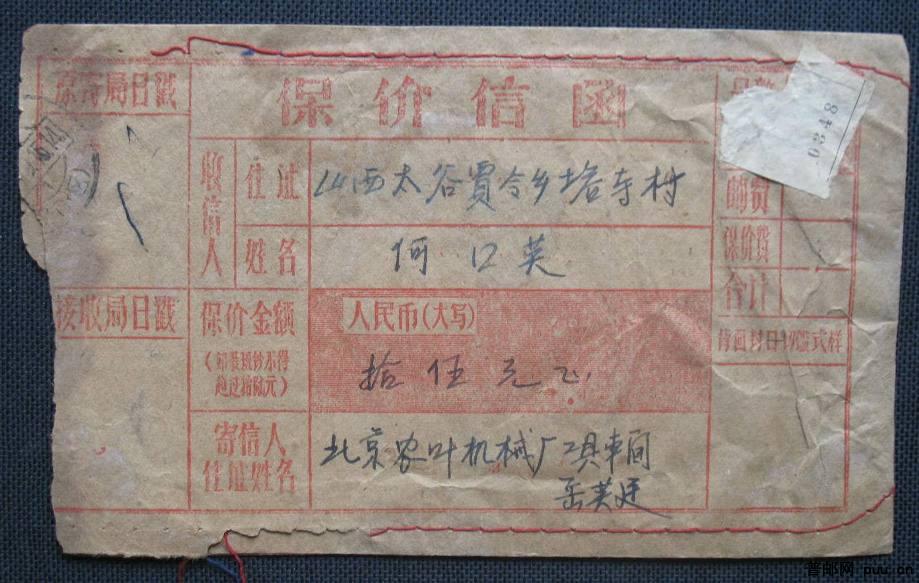 原寄局日戳
保价信函
0348
收信人
住址
山西太谷贾令乡塔寺村
邮资
姓名
何口英
保价费
合计
接收局日戳
保价金额
人民币(大写)
拾伍元正
背面封口日戳式样
寄信人
住址姓名
北京农叶机械厂工具车间
岳英廷
普邮网 puu.cn